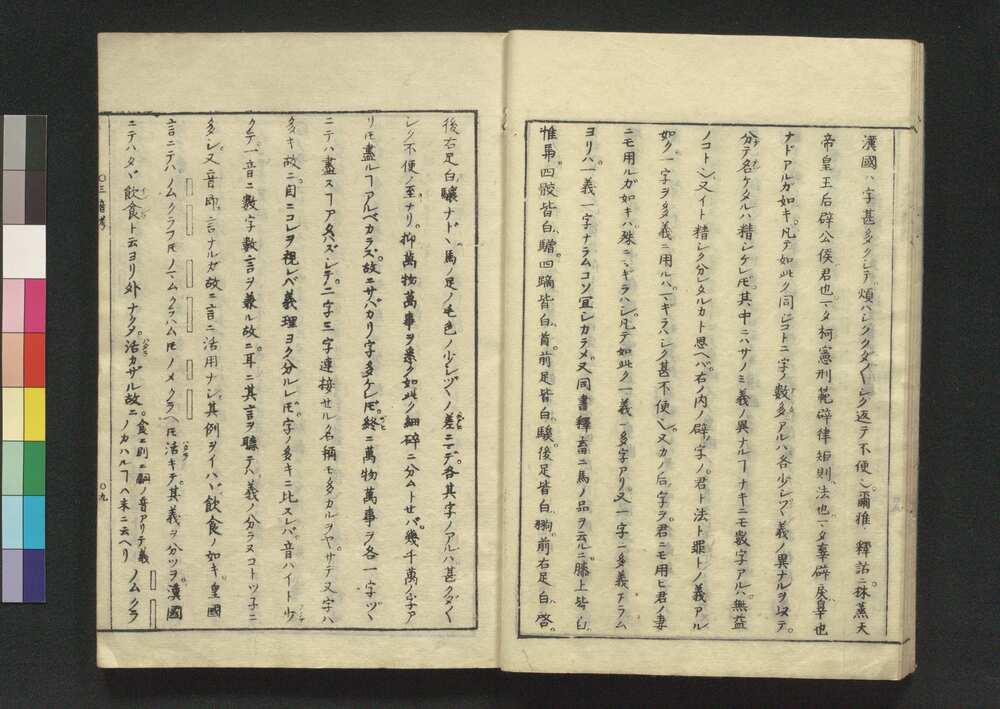 漢國ハ字甚多クシテ煩ハシククダ〳〵シク返テ不便ヿ爾雅釋詁ニ林蒸天
帝皇王后辟公侯君也マタ柯憲刑範辟律矩則法也マタ辜辟戾辠也
ナドアルガ如キ凡テ如此ク同ジコトニ字ノ數多アルハ各少シヅヽ義ノ異ナルヲ以テ
分テ名ケタルハ精シケレモ其中ニハサノミ義ノ異ナルヿナキニモ數字アルハ無益
ノコトヿ又イト精シク分レタルカト思ヘバ右ノ内ノ辟ノ字ノ君ト法ト罪トノ義アル
如ク一字ヲ多義ニ用ルハマギラハシク甚不便ヿ又カノ后ノ字ヲ君ニモ用ヒ君ノ妻
ニモ用ルガ如キハ殊ニマギラハシ凡テ如此ク一義ニ多字アリ又一字ニ多義アラム
ヨリハ一義一字ナラムコソ宜シカラメ又同書釋畜ニ馬ノ品ヲ云ルニ膝上皆白
惟馵四骹皆白驓四蹢皆白首前足皆白騱後足皆白翑前右足白啓
後右足白驤ナドヽ馬ノ足ノ毛色ノ少シヅヽノ差ニマデ各其字ノアルハ甚クダ〳〵
シク不便ノ至ナリ抑萬物萬事ヲ悉ク如此ク細碎ニ分ムトセバ幾千萬ノ字ア
リモ盡ルヿアルベカラズ故ニサバカリ字多ケレモ終ニ萬物萬事ヲ各一字ヅヽ
ニテハ盡スヿアタハズシテ二字三字連接セル名稱モ多カルヲヤサテ又字ハ
多キ故ニ目ニコレヲ視レバ義理ヨク分ルレモ字ノ多キニ比スレバ音ハイト少
クテ一音ニ數字數言ヲ兼ル故ニ耳ニ其言ヲ聽テハ義ノ分ラヌコトツ子ニ
多シ又音即言ナルガ故ニ言ニ活用ナシ其例ヲイハヾ飲食ノ如キ皇國
言ニテハノムクラフモノマムクラハムモノメクラヘモ活キテ其義ヲ分ツヲ漢國
ニテハタヾ飲食ト云ヨリ外ナクタ活カザル故ニ食ニ則ニ嗣ノ音アリテ義ノカハルヿハ末ニ云ヘリノムクラ
〇三音考
〇九